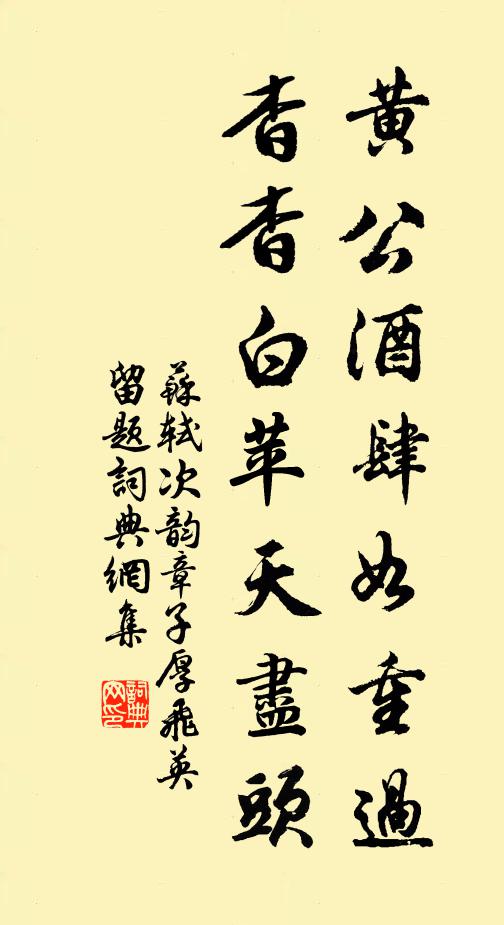 黄公酒肆如重過
杳杳白苹天盡頭
蘇軾次韵章子厚飛英
留題詞典網集
詞典
网印